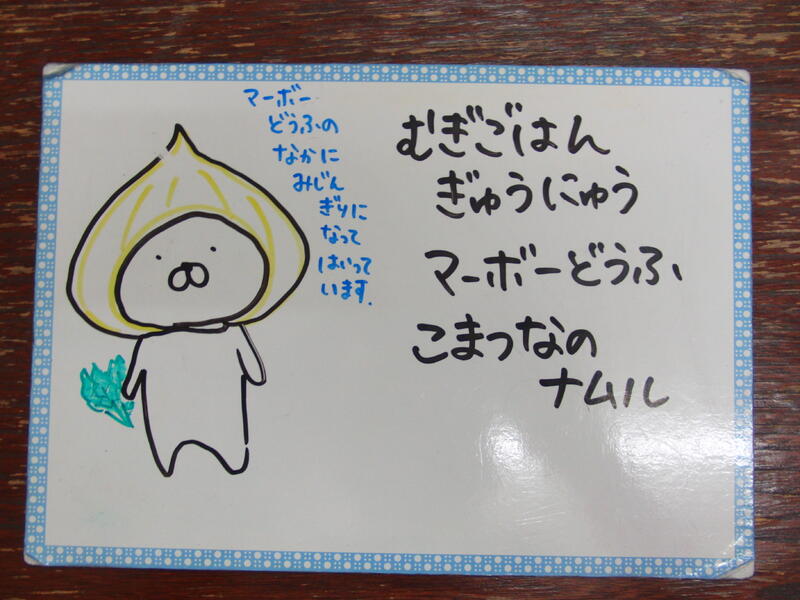 マーボー
どうふの
なかに
みじん
ぎりに
なって
はいって
います。
むぎごはん
ぎゅうにゅう
マーボーどうふ
こまつなの
ナムル